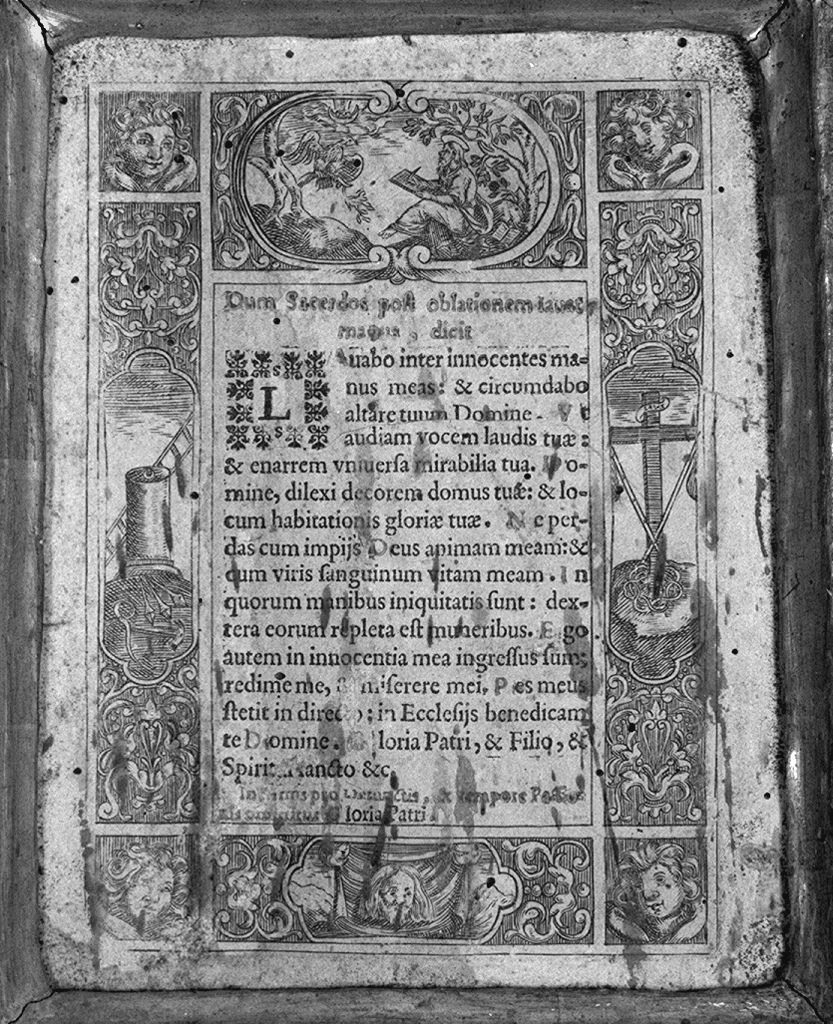 Dum Sacerdos post oblationem lavat
manus, dicit
Lauabo inter innocentes ma-
nus meas: & circumdabo
altare tuum Domine. Vt
audiam vocem laudis tuæ:
& enarrem vniuersa mirabilia tua. Do-
mine, dilexi decorem domus tuæ: & lo-
cum habitationis gloriæ tuæ. Ne per-
das cum impijs Deus animam meam: &
cum viris sanguinum vitam meam. In
quorum manibus iniquitatis sunt: dex-
tera eorum repleta est muneribus. Ego
autem in innocentia mea ingressus sum;
redime me, & miserere mei. Pes meus
stetit in directo: in Ecclesijs benedicam
te Domine. Gloria Patri, & Filio, &
Spiritui sancto &c.
In pro Defunctis, & tempore
Gloria Patri.